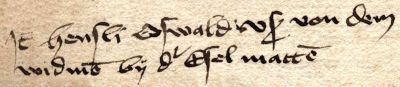 It hensli Oswald us von dem
widme bÿ dr Esel matte